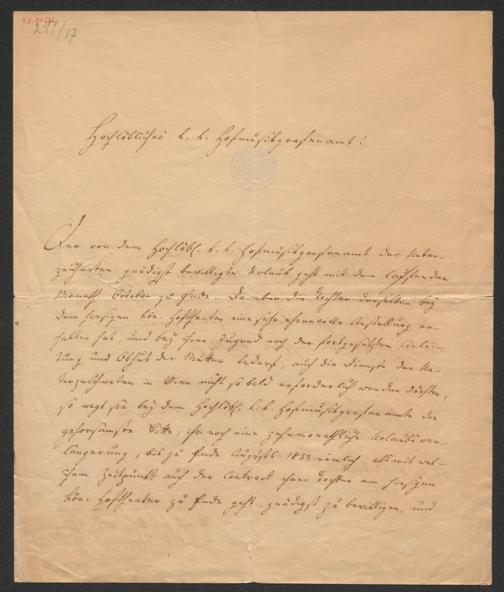 241/17
Hochlöbliches k. k. Hofmusikgrafenamt!
Der von dem Hochlöbl. k. k. Hofmusikgrafenamt der Unter-
zeichneten gnädigst bewilligte Urlaub geht mit dem laufenden
Monath October zu Ende. Da aber die Tochter derselben bey
dem hiesigen kön. Hoftheater eine sehr ehrenvolle Anstellung er-
halten hat, und bey ihrer Jugend noch der fortgesetzten Anlei-
tung und Obhut der Mutter bedarf, auch die Dienste der Un-
terzeichneten in Wien nicht so bald erforderlich werden dürften,
so wagt sie bey dem Hochlöbl. k. k. Hofmusikgrafenamte die
gehorsamste Bitte, ihr noch eine zehnmonathliche Urlaubsver-
längerung, bis zu Ende Augusts 1833 nämlich, als mit wel-
chem Zeitpunkt auch der Contract ihrer Tochter am hiesigen
kön. Hoftheater zu Ende geht, gnädigst zu bewilligen, und